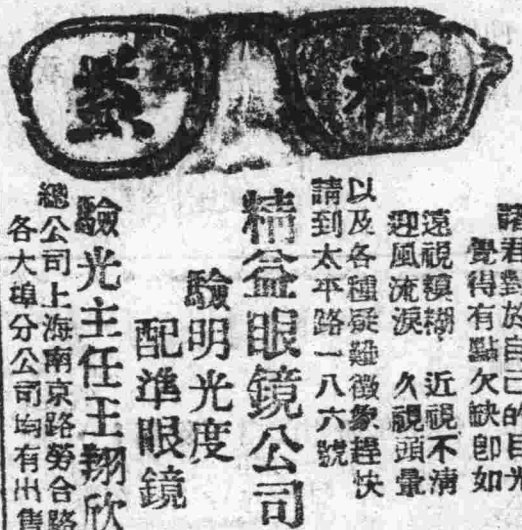 精益
諸君對於自己的目光
覺得有點欠缺卽如
遠視糢糊、近視不清
迎風流淚 久視頭暈
以及各種疑難徵象趕快
請到太平路一八六號
精益眼鏡公司
驗明光度
配準眼鏡
驗光主任王翔欣
總公司上海南京路勞合路
各大埠分公司均有出售